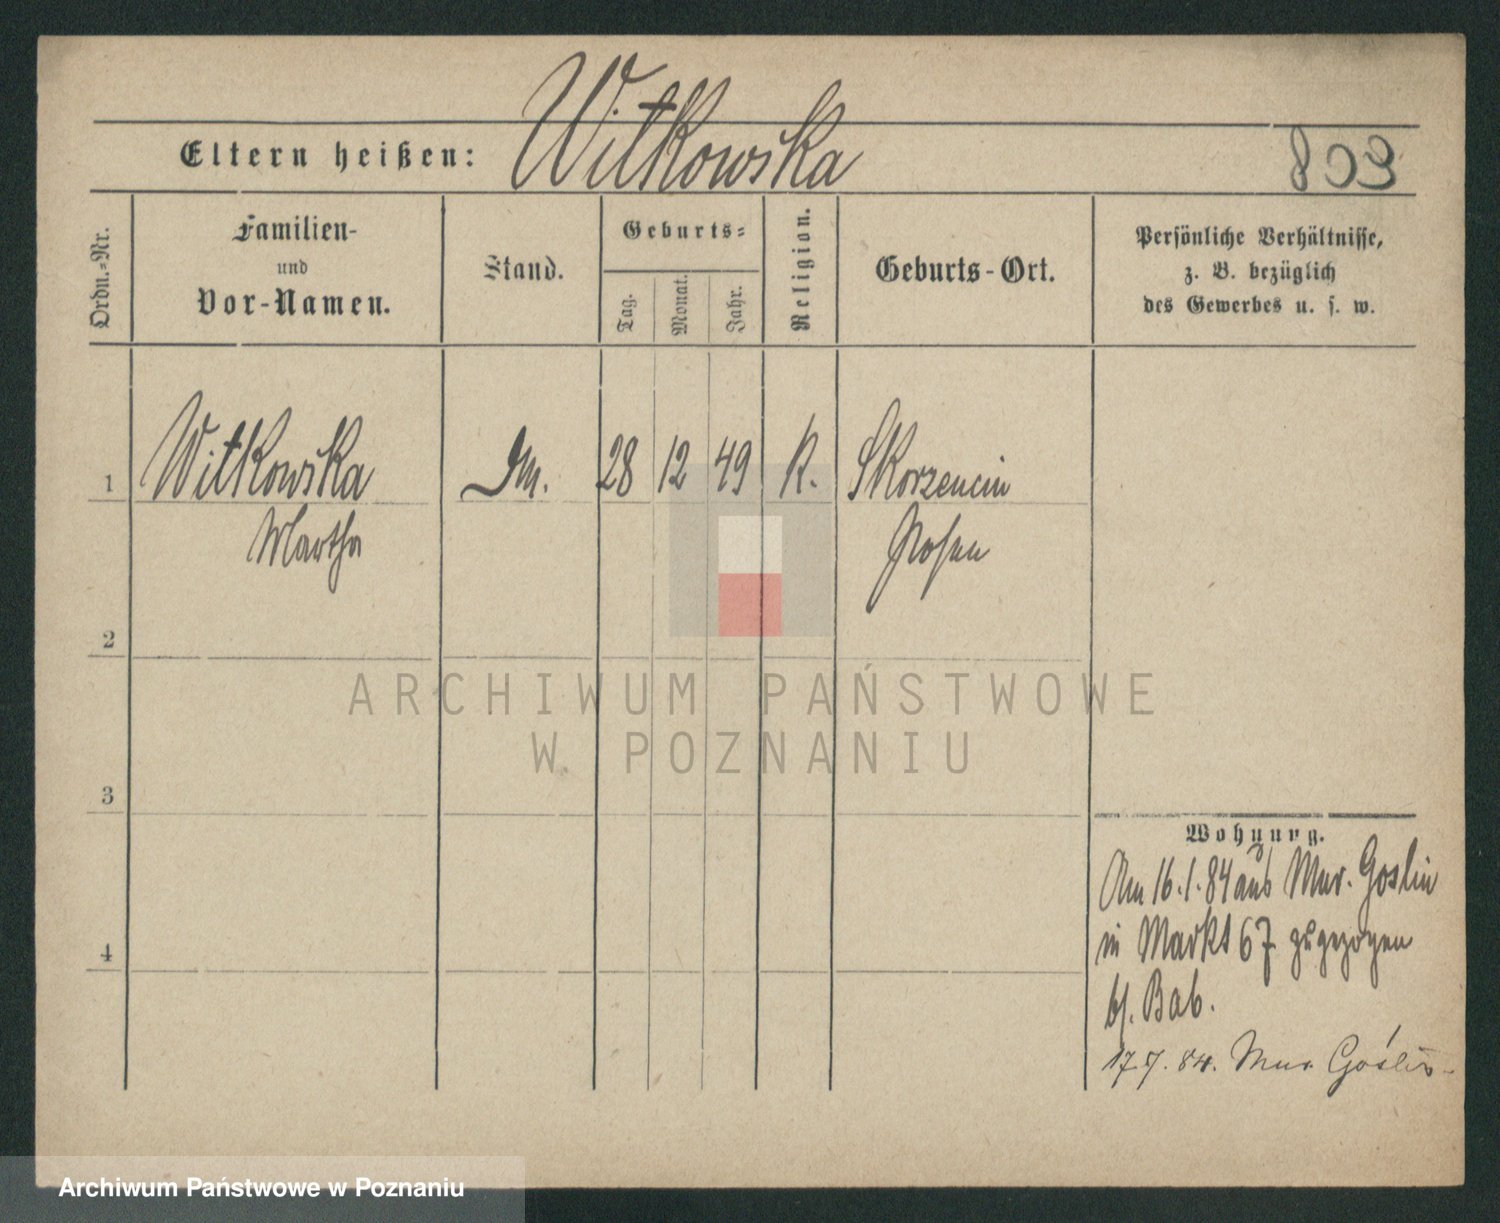 Witkowska
Eltern heißen:
803
Ordn.=Nr.
Familien-
und
Vor-Namen.
Stand.
Geburts=
Tag.
Monat.
Jahr.
Religion.
Geburts-Ort.
Persönliche Verhältnisse,
z. B. bezüglich
des Gewerbes u. s. w.
1
Witkowska
28
12
49
K.
Skorzencin
Martha
Posen
2
ARCHIWUM PAŃSTWOWE
W POZNANIU
3
Wohnung.
Am 16.1.84 aus Mur. Goslin
in Markt 67 zugezogen
b/. Bab.
4
17.7.84. Mur. Goślin
Archiwum Państwowe w Poznaniu